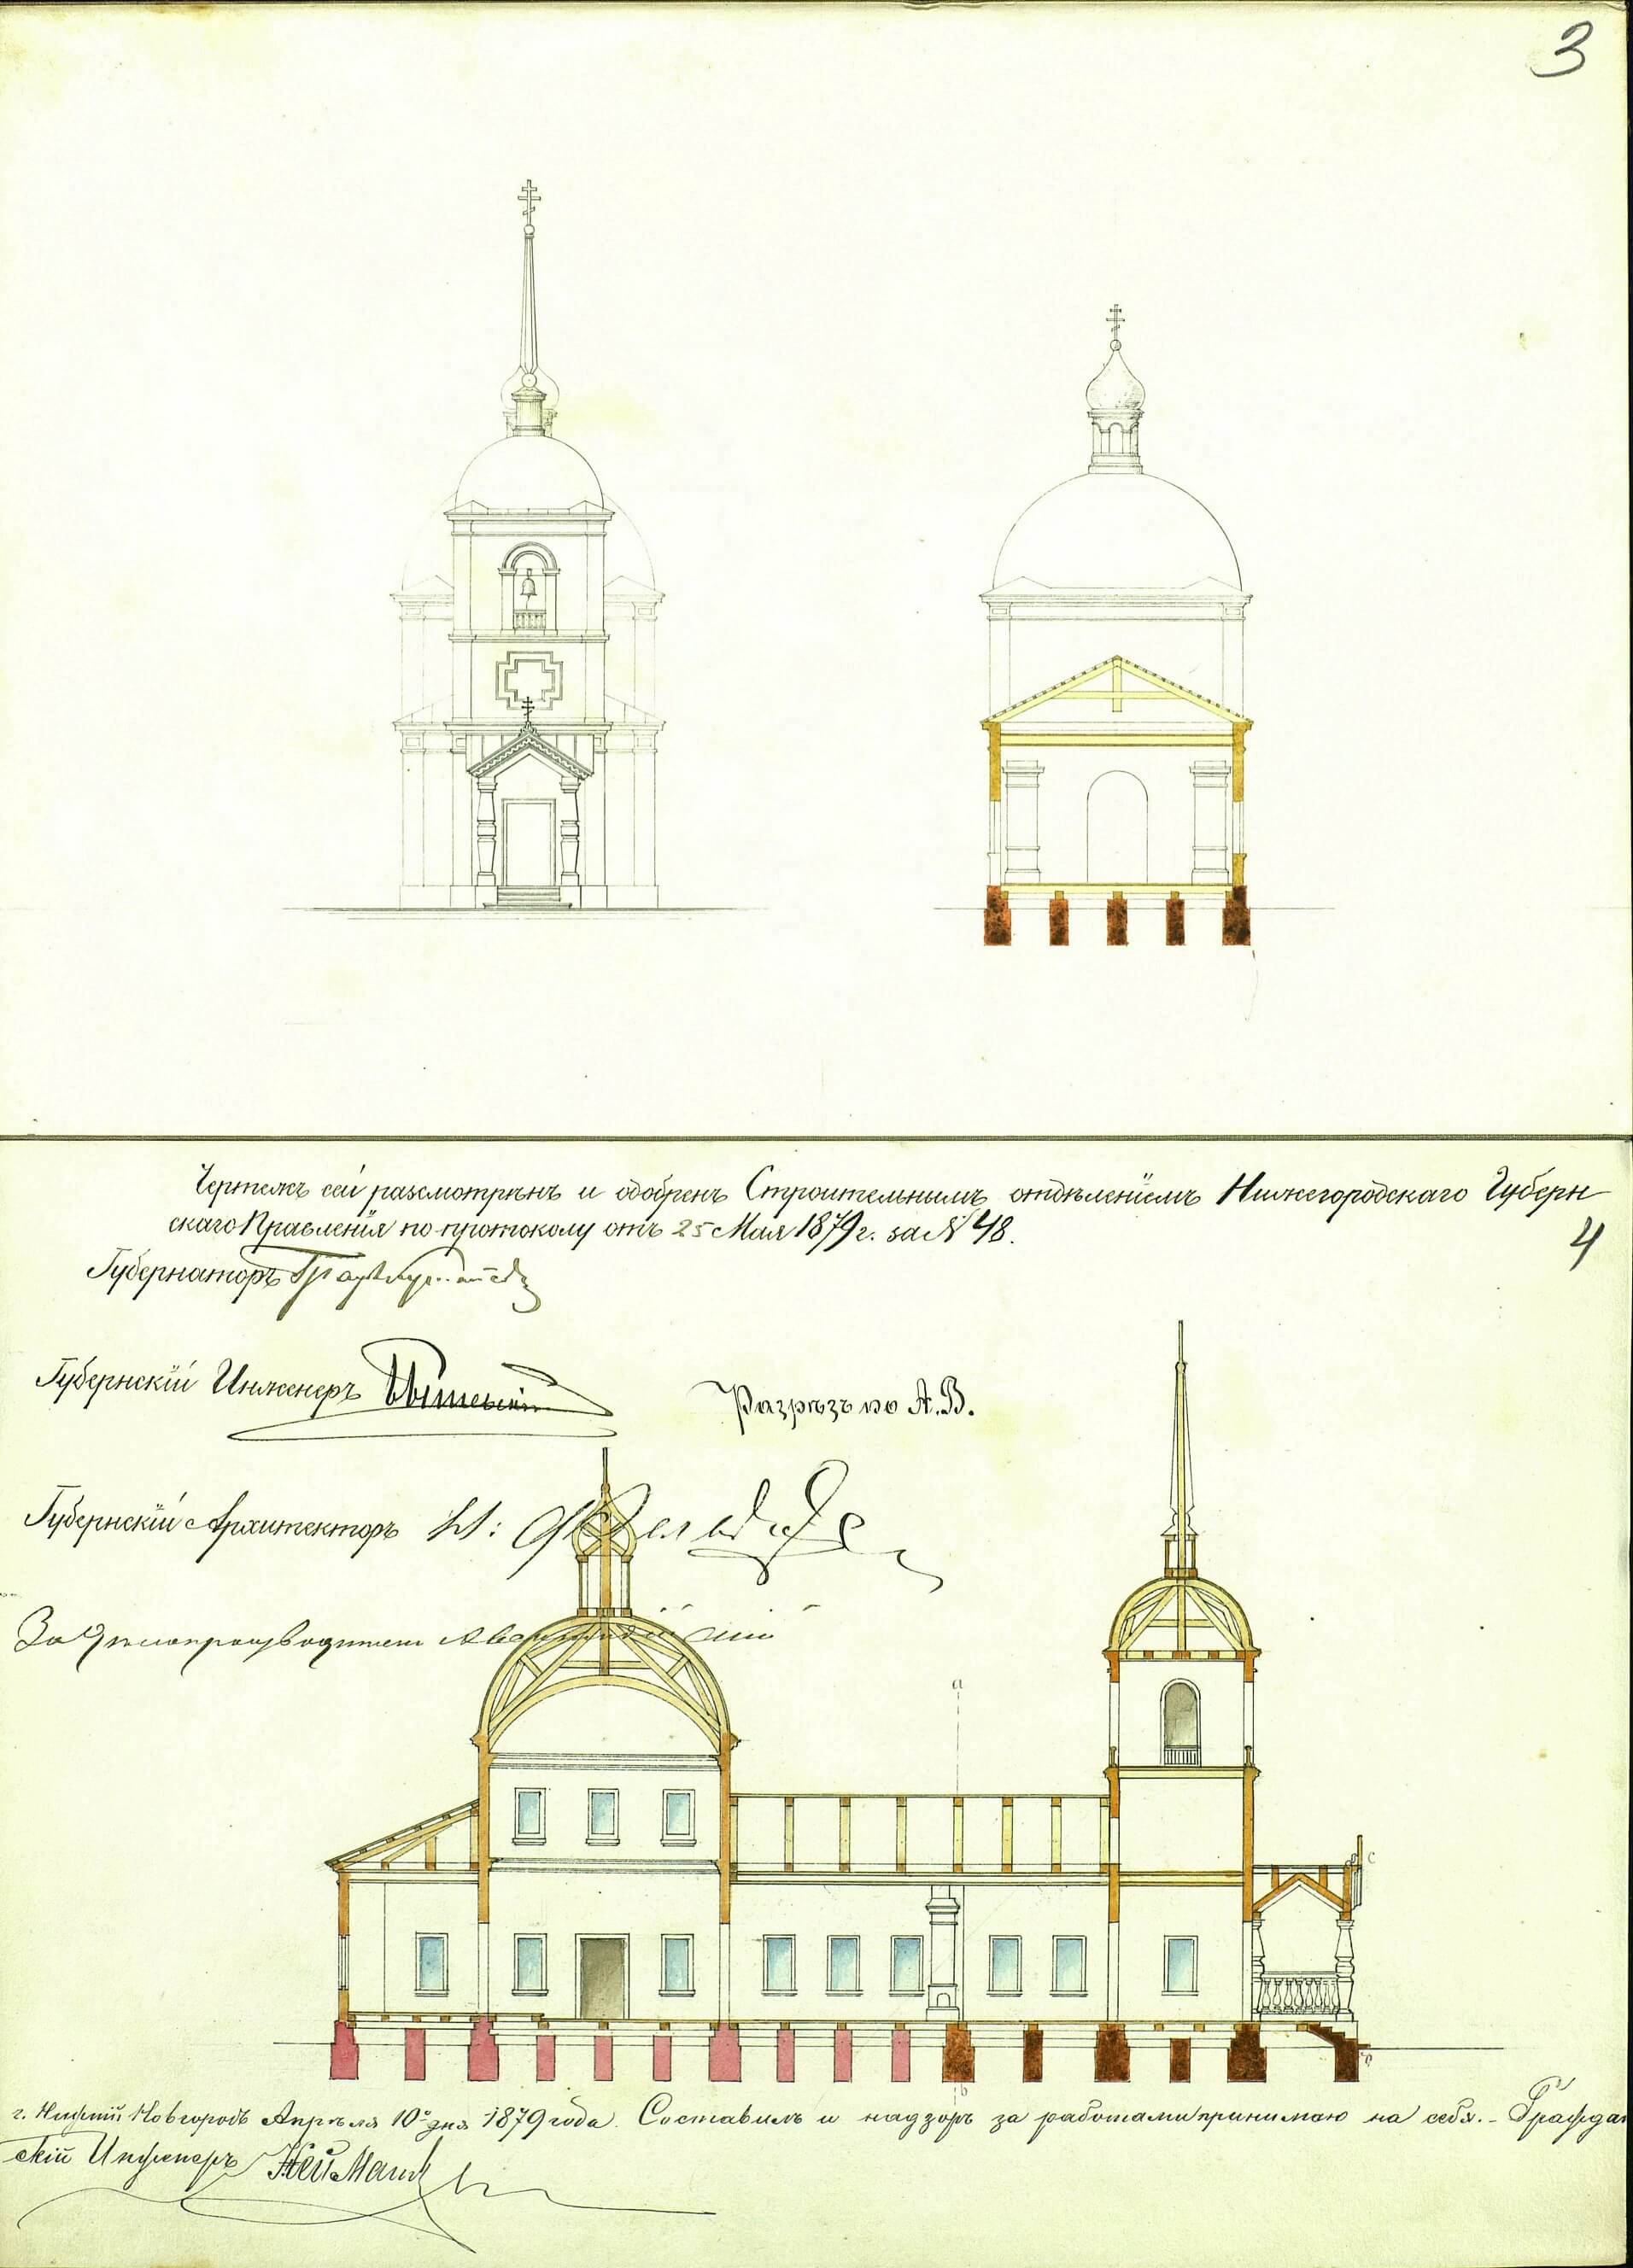 3
Чертежъ сей разсмотрѣнъ и одобренъ Строительнымъ отдѣленіемъ Нижегородскаго Губерн
скаго Правленія по протоколу отъ 25 Мая 1879 г. за № 48.
4
Губернаторъ Графъ
Губернскій Инженеръ
Разрѣзъ по А.В.
Губернскій Архитекторъ Н:
За Дѣлопроизводителя
a
c
b
г. Нижній Новгородъ Апрѣля 10го дня 1879 года. Составилъ и надзоръ за работами принимаю на себя. - Граждан
скій Инженеръ Нейманъ